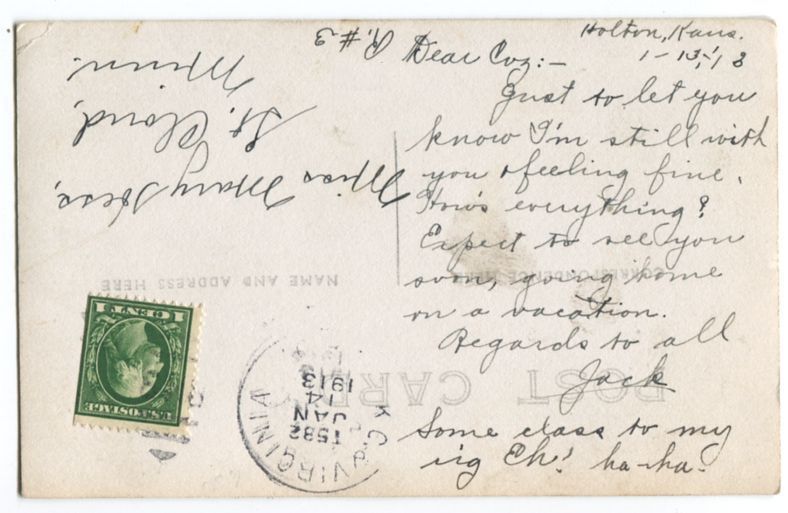 Holton, Kans.
1-13-13
Dear Coz:-
Just to let you
know I'm still with
you & feeling fine.
How's everything?
Expect to see you
soon, going home
on a vacation.
Regards to all
Jack
Some class to my
rig Eh! ha-ha.
Miss Mary Hess,
St. Cloud,
Minn.
R. #3
POST CARD
CORRESPONDENCE HERE
NAME AND ADDRESS HERE
U.S. POSTAGE
1 CENT 1
K.C. & VIRGINIA
T582
JAN
14
1913